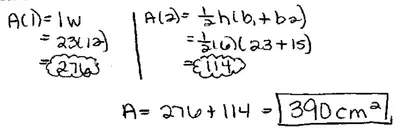 A(1) = lw
= 23(12)
= 276
A(2) = ½h(b₁+b2)
= ½(6)(23+15)
= 114
A = 276 + 114 = 390cm²